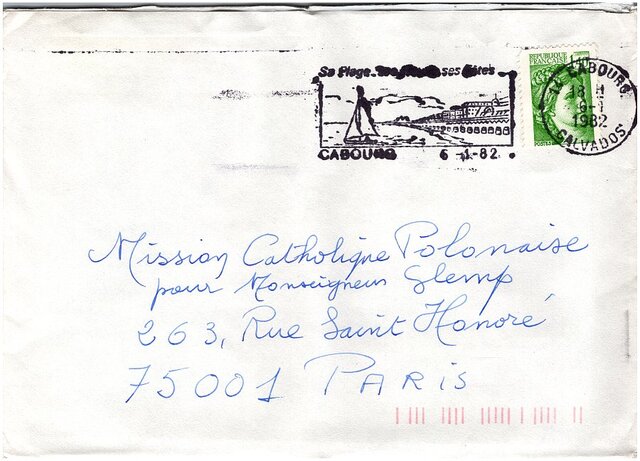 Sa Plage ses Fêtes
CABOURG 6-1-82
REPUBLIQUE
FRANÇAISE
14 CABOURG
18 H
6-1
1982
CALVADOS
POSTES
Mission Catholique Polonaise
pour Monseigneur Glemp
263, Rue Saint Honoré
75001 PARIS